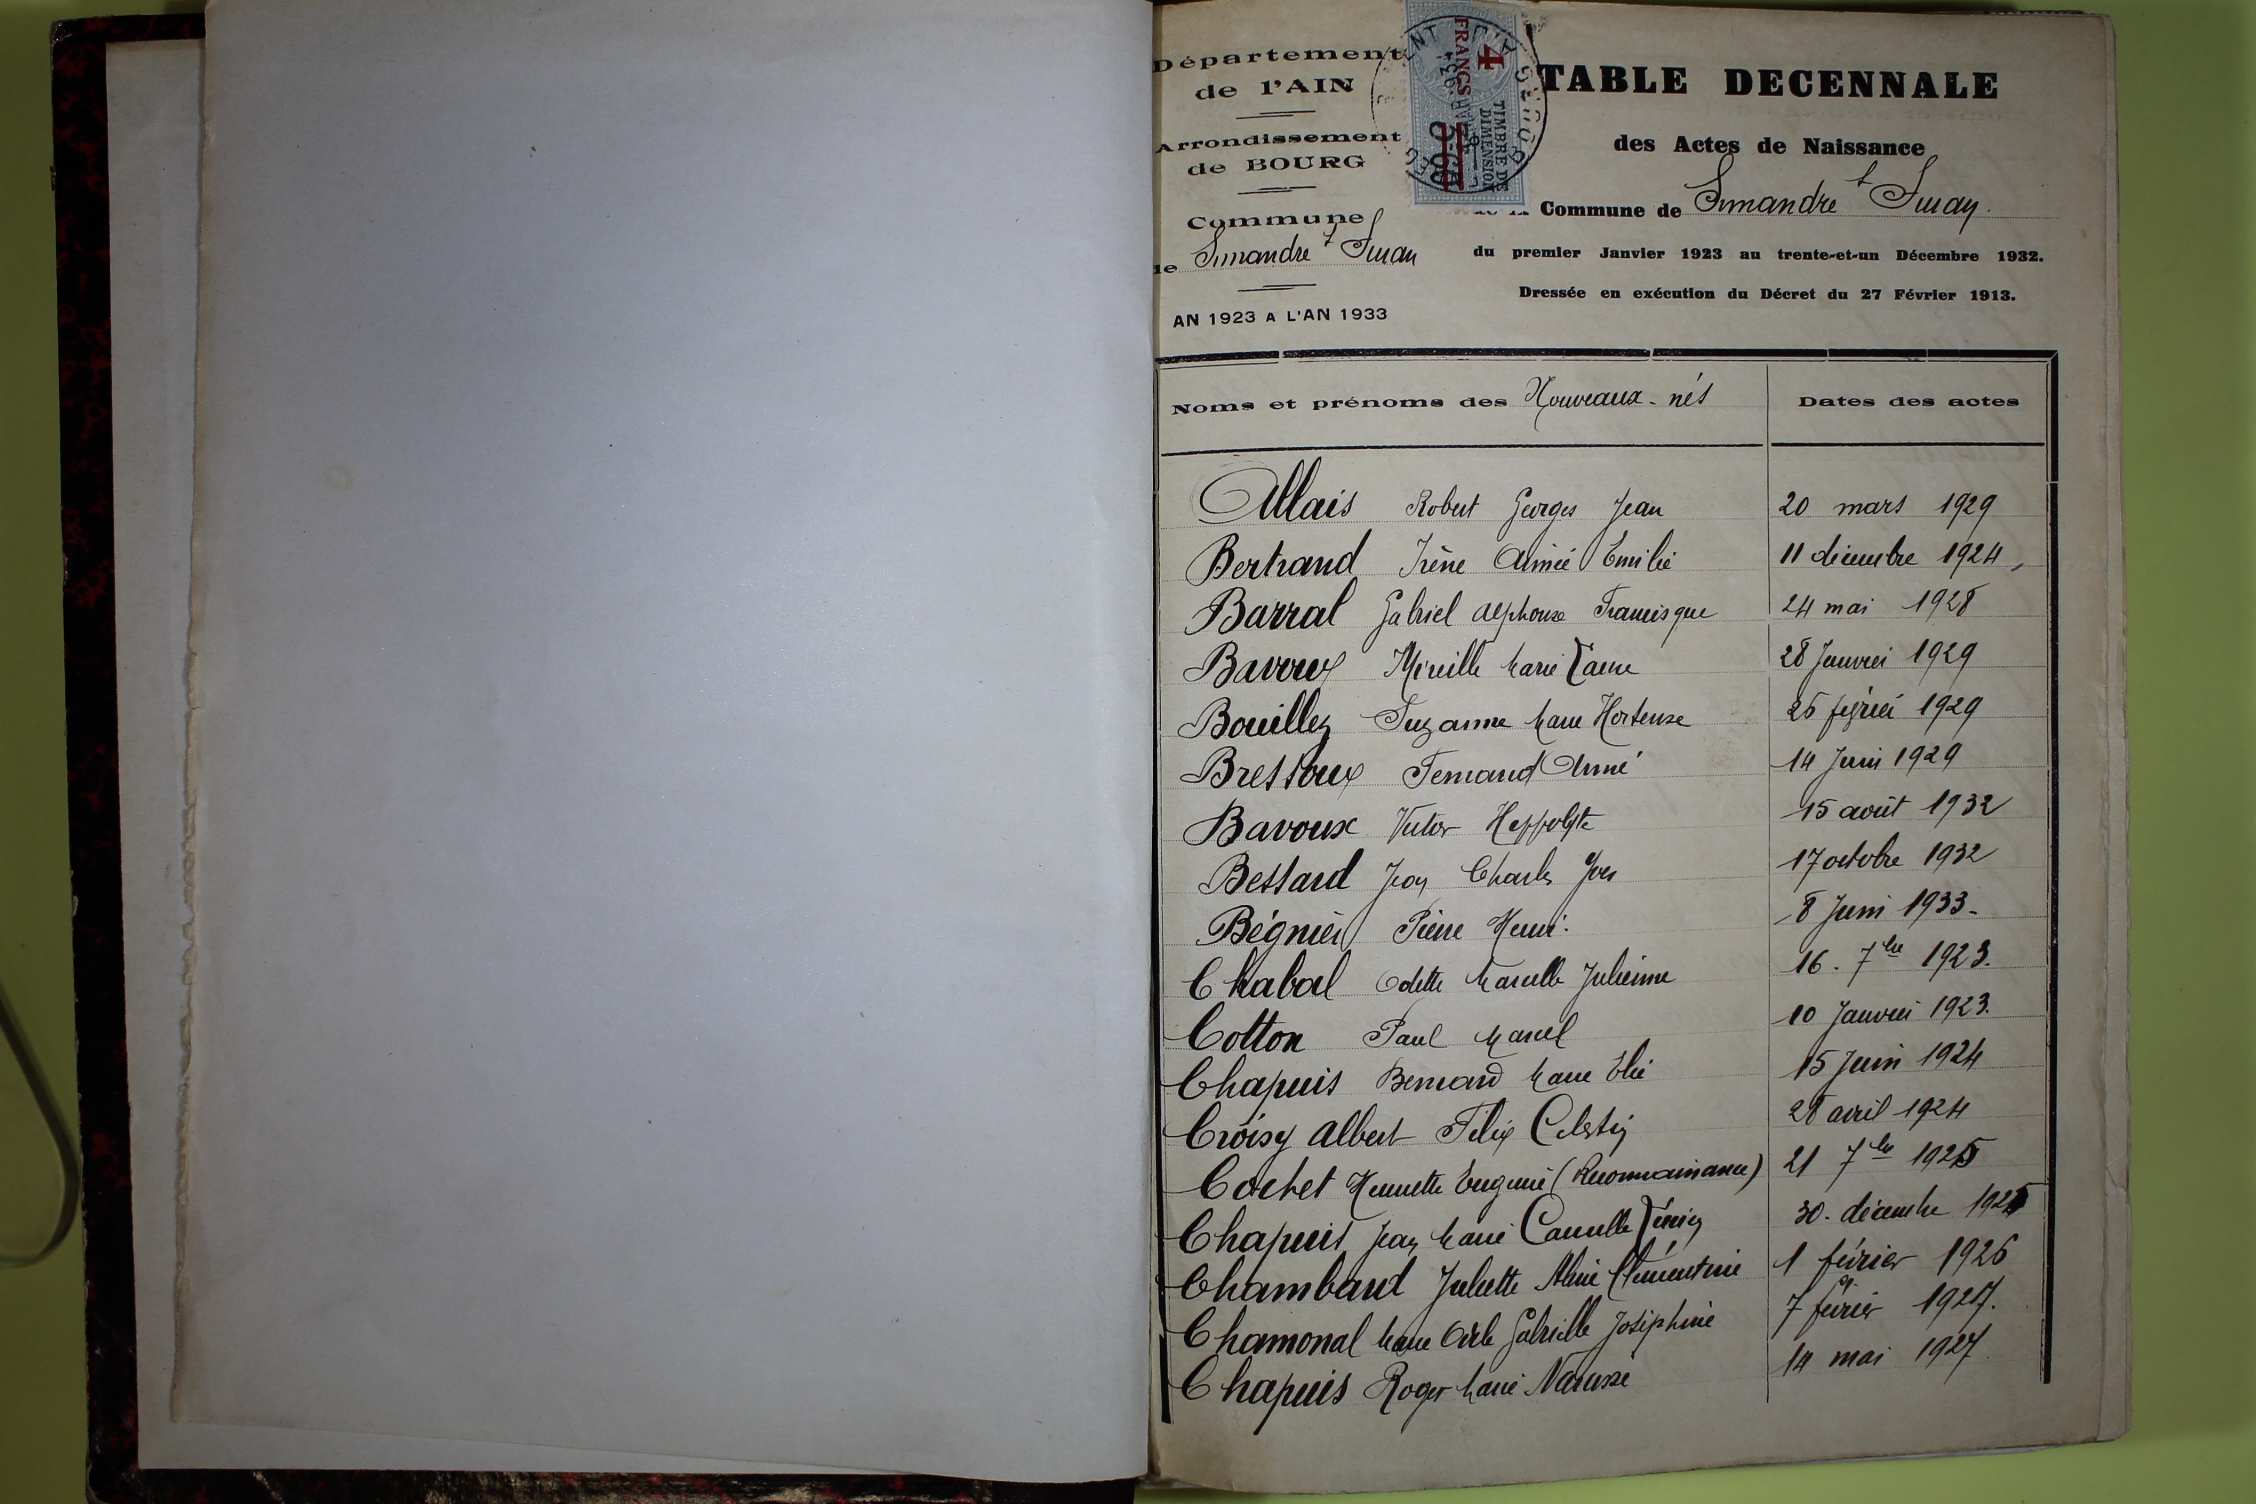 Département
de l'AIN
Arrondissement
de BOURG
Commune
de Simandre s Suran
AN 1923 A L'AN 1933
4
FRANCS
TIMBRE DE
DIMENSION
TABLE DECENNALE
des Actes de Naissance
de la Commune de Simandre s Suran.
du premier Janvier 1923 au trente-et-un Décembre 1932.
Dressée en exécution du Décret du 27 Février 1913.
Noms et prénoms des Nouveaux-nés Dates des actes
Allais Robert Georges Jean 20 mars 1929
Bertrand Irène Aimée Emilie 11 décembre 1924
Barral Gabriel Alphonse Francisque 24 mai 1928
Bavoux Mireille Marie 28 Janvier 1929
Bouillez Suzanne Marie Hortense 26 février 1929
Bressoux Fernand Aimé 14 Juin 1929
Bavoux Victor Hippolyte 15 août 1932
Bessard Jean Charles Yves 17 octobre 1932
Bégnier Pierre Henri. 8 Juin 1933-
Chabal Odette Marcelle Julienne 16. 7bre 1923.
Cotton Paul Marcel 10 Janvier 1923.
Chapuis Bernard Marie Elie 15 Juin 1924
Croisy Albert Felix Celestin 28 avril 1924
Cochet Henriette Eugenie (Reconnaissance) 21 7bre 1925
Chapuis Jean Marie Camille 30. décembre 1925
Chambard Juliette Aline Clémentine 1 février 1926
Chamonal Marie Gabrielle Joséphine 7 février 1927.
Chapuis Roger Marie Narcisse 14 mai 1927.